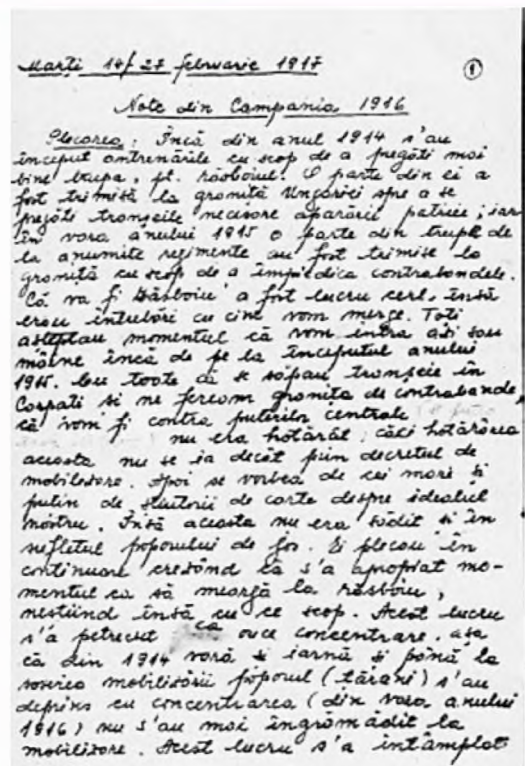 Marți 14/27 februarie 1917
①
Note din Campania 1916
Plecarea: Încă din anul 1914 s'au
început antrenările cu scop de a pregăti mai
bine trupa, pt. răsboiul. O parte din ei a
fost trimisă la graniță Ungariei spre a se
pregăti tranșeile necesare apărării patriei; iar
în vara anului 1915 o parte din trupele de
la anumite regimente au fost trimise la
graniță cu scop de a împiedica contrabandele.
Că va fi Răsboiu a fost lucru cert, însă
erau întrebări cu cine vom merge. Toți
așteptau momentul că vom intra azi sau
mâine încă de pe la începutul anului
1915. Cu toate că se săpau tranșeie în
Carpați și ne feream granița de contrabande
că vom fi contra puterilor centrale
nu era hotărât; căci hotărârea
aceasta nu se ia decât prin decretul de
mobilizare. Apoi se vorbea de cei mari și
puțin de știutorii de carte despre idealul
nostru. Însă aceasta nu era sădit și în
sufletul poporului de jos. Ei plecau în
continuare crezând că s'a apropiat mo-
mentul ca să meargă la răsboiu,
neștiind însă cu ce scop. Acest lucru
s'a petrecut ca orice concentrare. așa
că din 1914 vară și iarnă și până la
sosirea mobilizării poporul (țărani) s'au
deprins cu concentrarea (din vara anului
1916) nu s'au mai îngrămădit la
mobilizare. Acest lucru s'a întâmplat